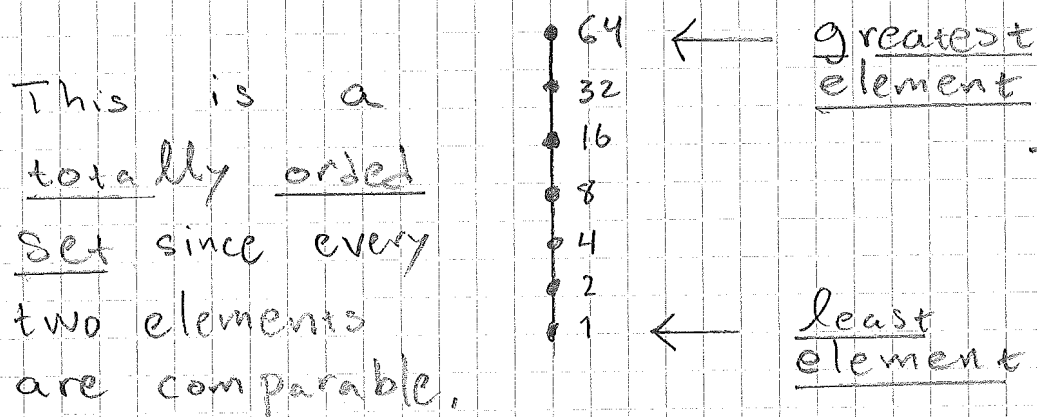 This is a
totally orded
set since every
two elements
are comparable.
64
32
16
8
4
2
1
greatest
element
least
element